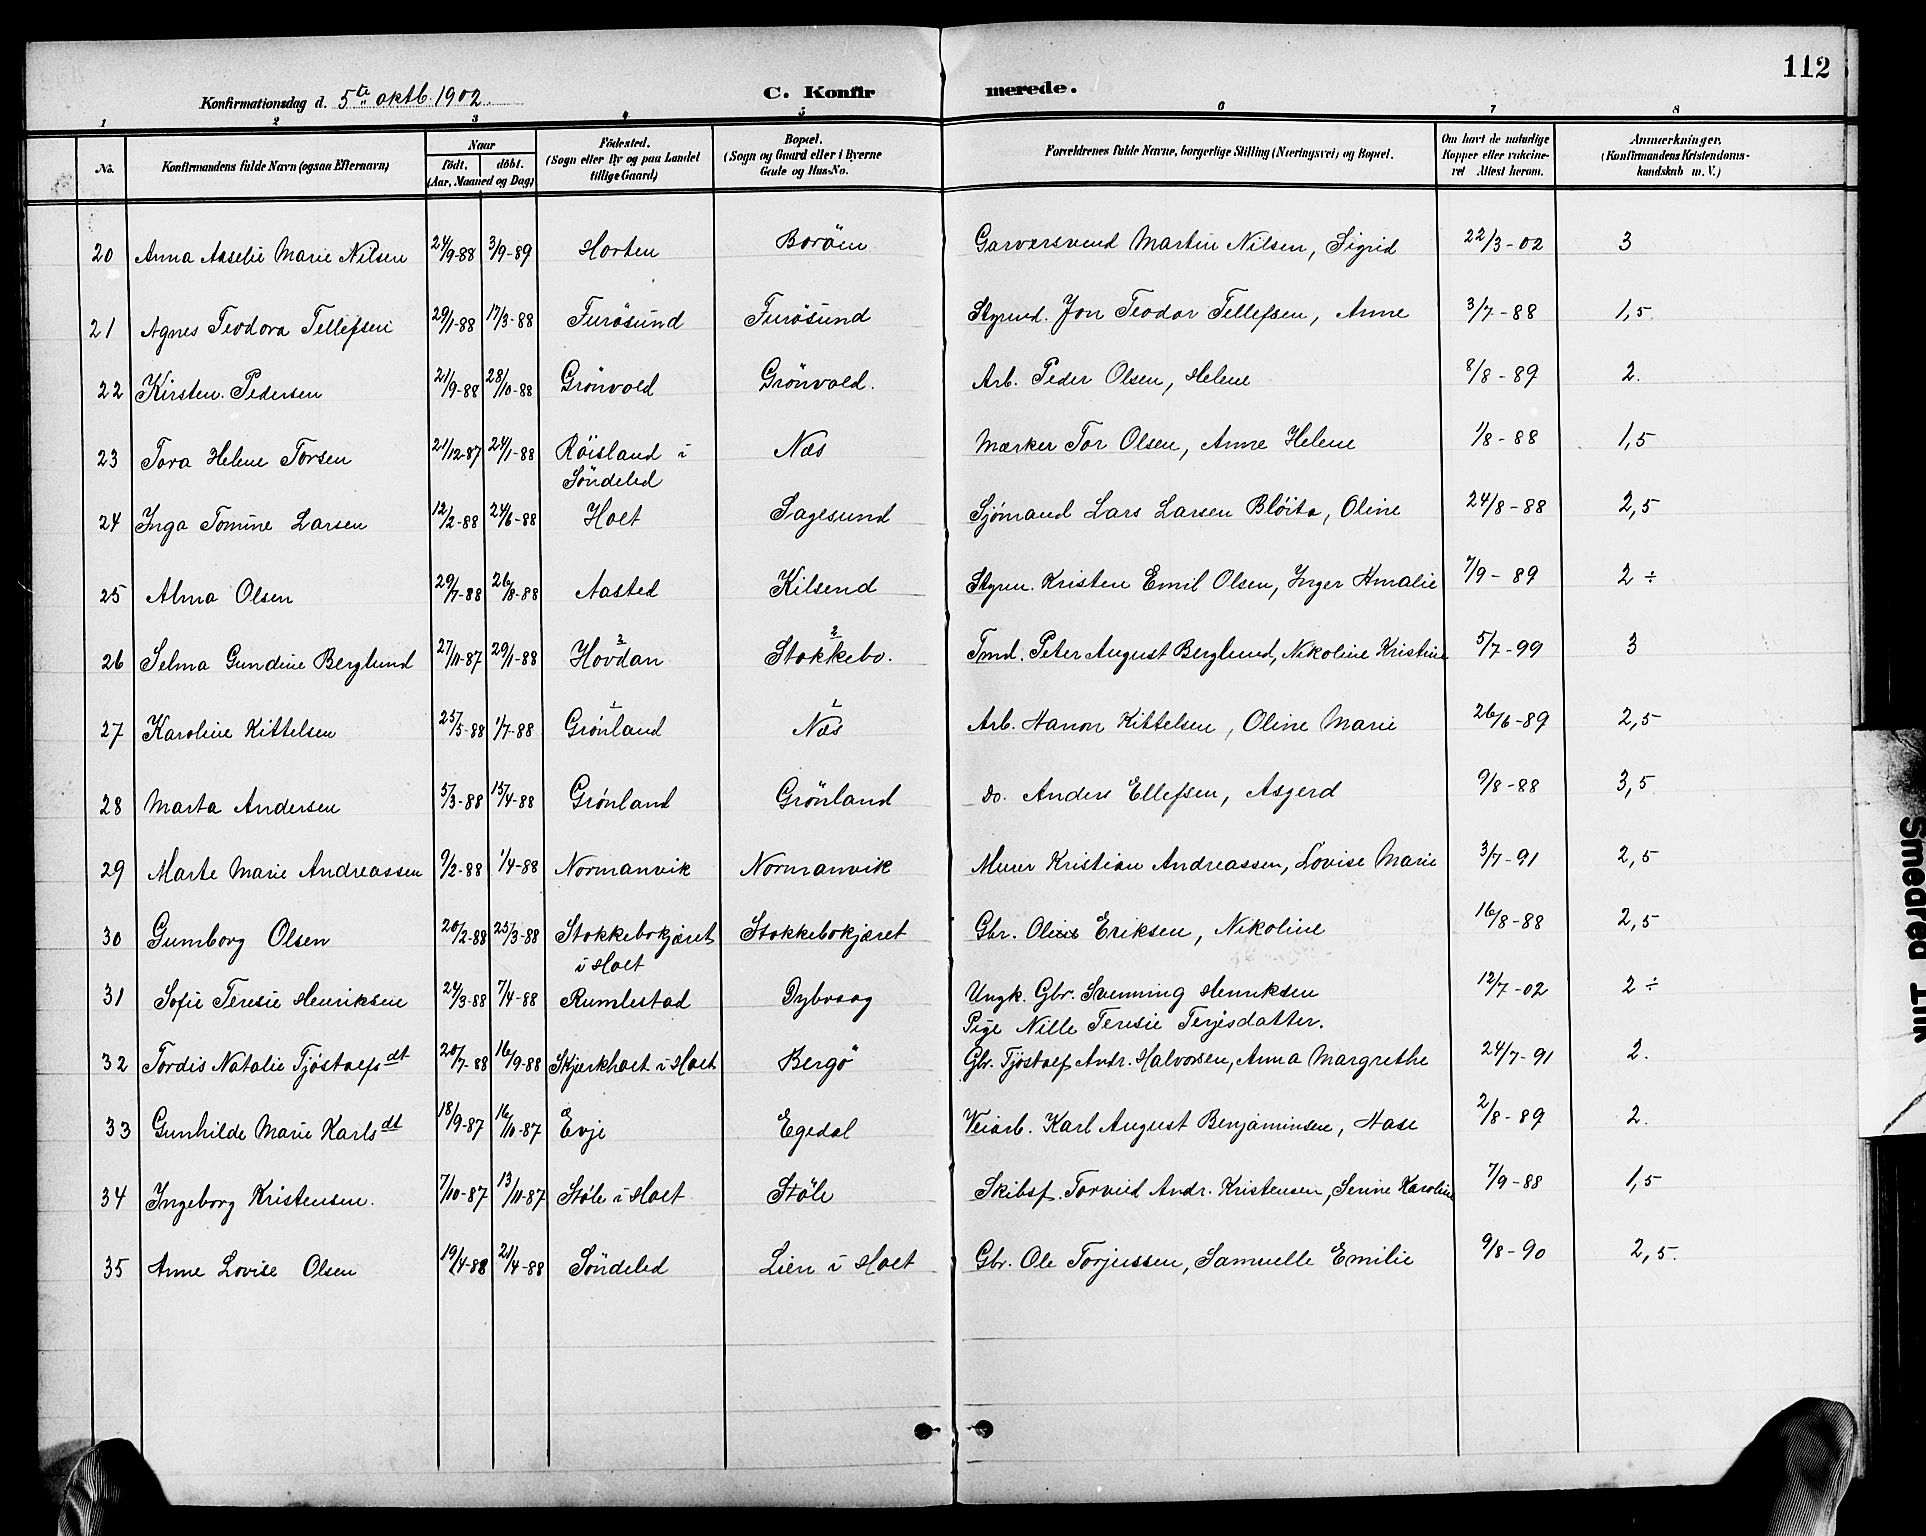 112
Konfirmationsdag d. 5te oktb. 1902. C. Konfirmerede.
1 2 3 4 5 6 7 8
No. Konfirmandens fulde Navn (ogsaa Efternavn) Naar født. døbt. (Aar, Maaned og Dag) Födested. (Sogn eller By og paa Landet tillige Gaard) Bopæl. (Sogn og Gaard eller i Byerne Gade og Hus-No. Forældrenes fulde Navne, borgerlige Stilling (Næringsvei) og Bopæl. Om havt de naturlige Kopper eller vakcineret Attest herom. Anmærkninger, (Konfirmandens Kristendomskundskab m. V.)
20 Anna Aaselie Marie Nilsen 24/9-88 3/9-89 Horten Boröen Garversvend Martin Nilsen, Sigrid 22/3-02 3
21 Agnes Teodora Tellefsen 29/1-88 17/3-88 Furösund Furösund Styrmd. Jon Teodor Tellefsen, Anne 3/7-88 1,5.
22 Kirsten Pedersen 21/9-88 28/10-88 Grönvold Grönvold. Arb. Peder Olsen, Helene 8/8-89 2.
23 Tora Helene Torsen 21/12-87 24/1-88 Röisland i Næs Mærker Tor Olsen, Anne Helene 1/8-88 1,5
Söndeled
24 Inga Tomine Larsen 12/2-88 24/6-88 Holt Sagesund Sjömand Lars Larsen Blöita, Oline 24/8-88 2,5
25 Alma Olsen 29/7-88 26/8-88 Aasted Kilsend Styrm. Kristen Emil Olsen, Inger Amalie 7/9-89 2 ÷
26 Selma Gundine Berglund 27/11-87 29/1-88 Hovdan 2 Stokkebo. 2 Tmd. Peter August Berglund, Nikoline Kristine 5/7-99 3
27 Karoline Kittelsen 25/5-88 1/7-88 Grönland Næs Arb. Hanon Kittelsen, Oline Marie 26/6-89 2,5
28 Marta Andersen 5/3-88 15/4-88 Grönland Grönland do. Anders Ellefsen, Asgerd 9/8-88 3,5
29 Marte Marie Andreassen 9/2-88 1/4-88 Normanvik Normanvik Murer Kristian Andreassen, Lovise Marie 3/7-91 2,5
30 Gumborg Olsen 20/2-88 25/3-88 Stokkebokjæret Stokkebokjæret Gbr. Eriksen, Nikoline 16/8-88 2,5
i Holt
31 Sofie Teresie Henriksen 24/3-88 7/4-88 Rumlestad Dybvaag Ungk. Gbr. Svenning Henriksen 12/7-02 2 ÷
Pige Nille Teresie Terjesdatter.
32 Tordis Natalie Tjöstolfsdt 20/7-88 16/9-88 Skjerkholt i Holt Bergö Gbr. Tjöstolf Andr. Halvorsen, Anna Margrethe 24/7-91 2.
33 Gunhilde Marie Karlsdt 18/9-87 16/10-87 Evje Egedal Veiarb. Karl August Benjaminsen, Aase 2/8-89 2.
34 Ingeborg Kristensen. 7/10-87 13/11-87 Støle i Holt Støle Skibsf. Torvild Andr. Kristensen, Serine Karoline 7/9-88 1,5
35 Anne Lovise Olsen 19/4-88 21/4-88 Söndeled Lien i Holt Gbr. Ole Torjussen, Samuelle Emilie 9/8-90 2,5.
Smeared Ink